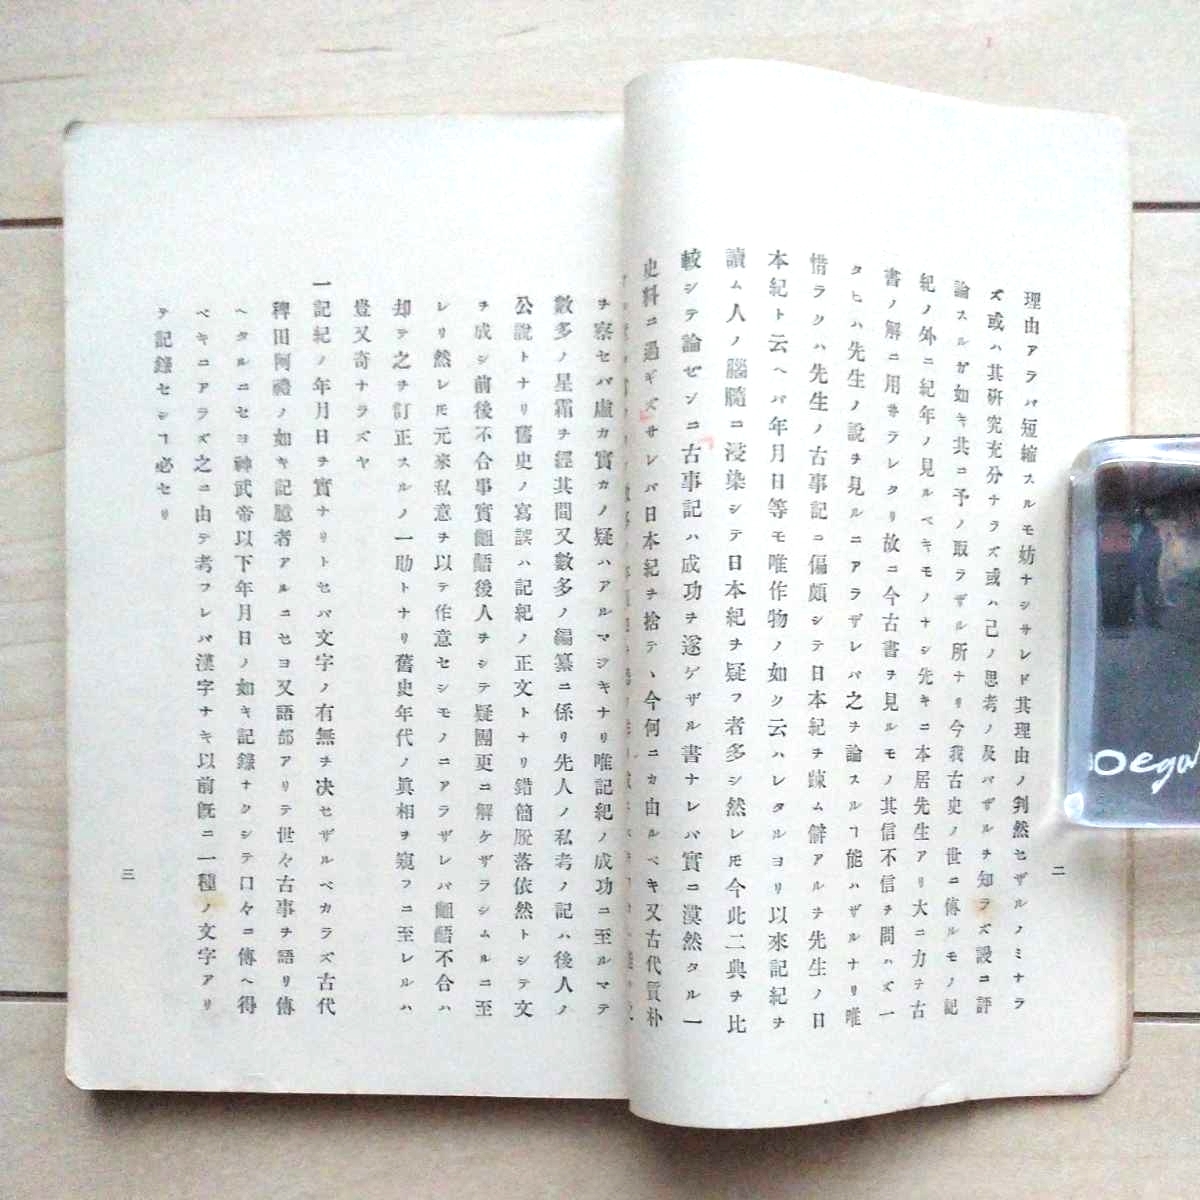 理由アラバ短縮スルモ妨ナシサレド其理由ノ判然セザルノミナラ
ズ或ハ其研究充分ナラズ或ハ己ノ思考ノ及バザルヲ知ラズ設ニ評
論スルガ如キ共ニ予ノ取ラザル所ナリ今我古史ノ世ニ傳ルモノ記
紀ノ外ニ紀年ノ見ルベキモノナシ先キニ本居先生アリ大ニ力テ古
書ノ解ニ用ヰラレタリ故ニ今古書ヲ見ルモノ其信不信ヲ問ハズ一
タヒハ先生ノ説ヲ見ルニアラザレバ之ヲ論スルヿ能ハザルナリ唯
惜ラクハ先生ノ古事記ニ偏頗シテ日本紀ヲ踈ム僻アルヲ先生ノ日
本紀ト云ヘバ年月日等モ唯作物ノ如ク云ハレタルヨリ以來記紀ヲ
讀ム人ノ腦髓ニ浸染シテ日本紀ヲ疑フ者多シ然レ𪜈今此二典ヲ比
較シテ論ゼンニ古事記ハ成功ヲ遂ゲザル書ナレバ實ニ漠然タル一
史料ニ過ギズサレバ日本紀ヲ捨テヽ今何ニカ由ルベキ又古代質朴
二
ヲ察セバ虛カ實カノ疑ハアルマジキナリ唯記紀ノ成功ニ至ルマテ
數多ノ星霜ヲ經其間又數多ノ編纂ニ係リ先人ノ私考ノ記ハ後人ノ
公說トナリ舊史ノ寫誤ハ記紀ノ正文トナリ錯簡脫落依然トシテ文
ヲ成シ前後不合事實齟齬後人ヲシテ疑團更ニ解ケザラシムルニ至
レリ然レ𪜈元來私意ヲ以テ作意セシモノニアラザレバ齟齬不合ハ
却テ之ヲ訂正スルノ一助トナリ舊史年代ノ眞相ヲ窺フニ至レルハ
豈又奇ナラズヤ
一記紀ノ年月日ヲ實ナリトセバ文字ノ有無ヲ決セザルベカラズ古代
稗田阿禮ノ如キ記臆者アルニセヨ又語部アリテ世々古事ヲ語リ傳
ヘタルニセヨ神武帝以下年月日ノ如キ記錄ナクシテ口々ニ傳ヘ得
ベキニアラズ之ニ由テ考フレバ漢字ナキ以前既ニ一種ノ文字アリ
テ記錄セシヿ必セリ
三